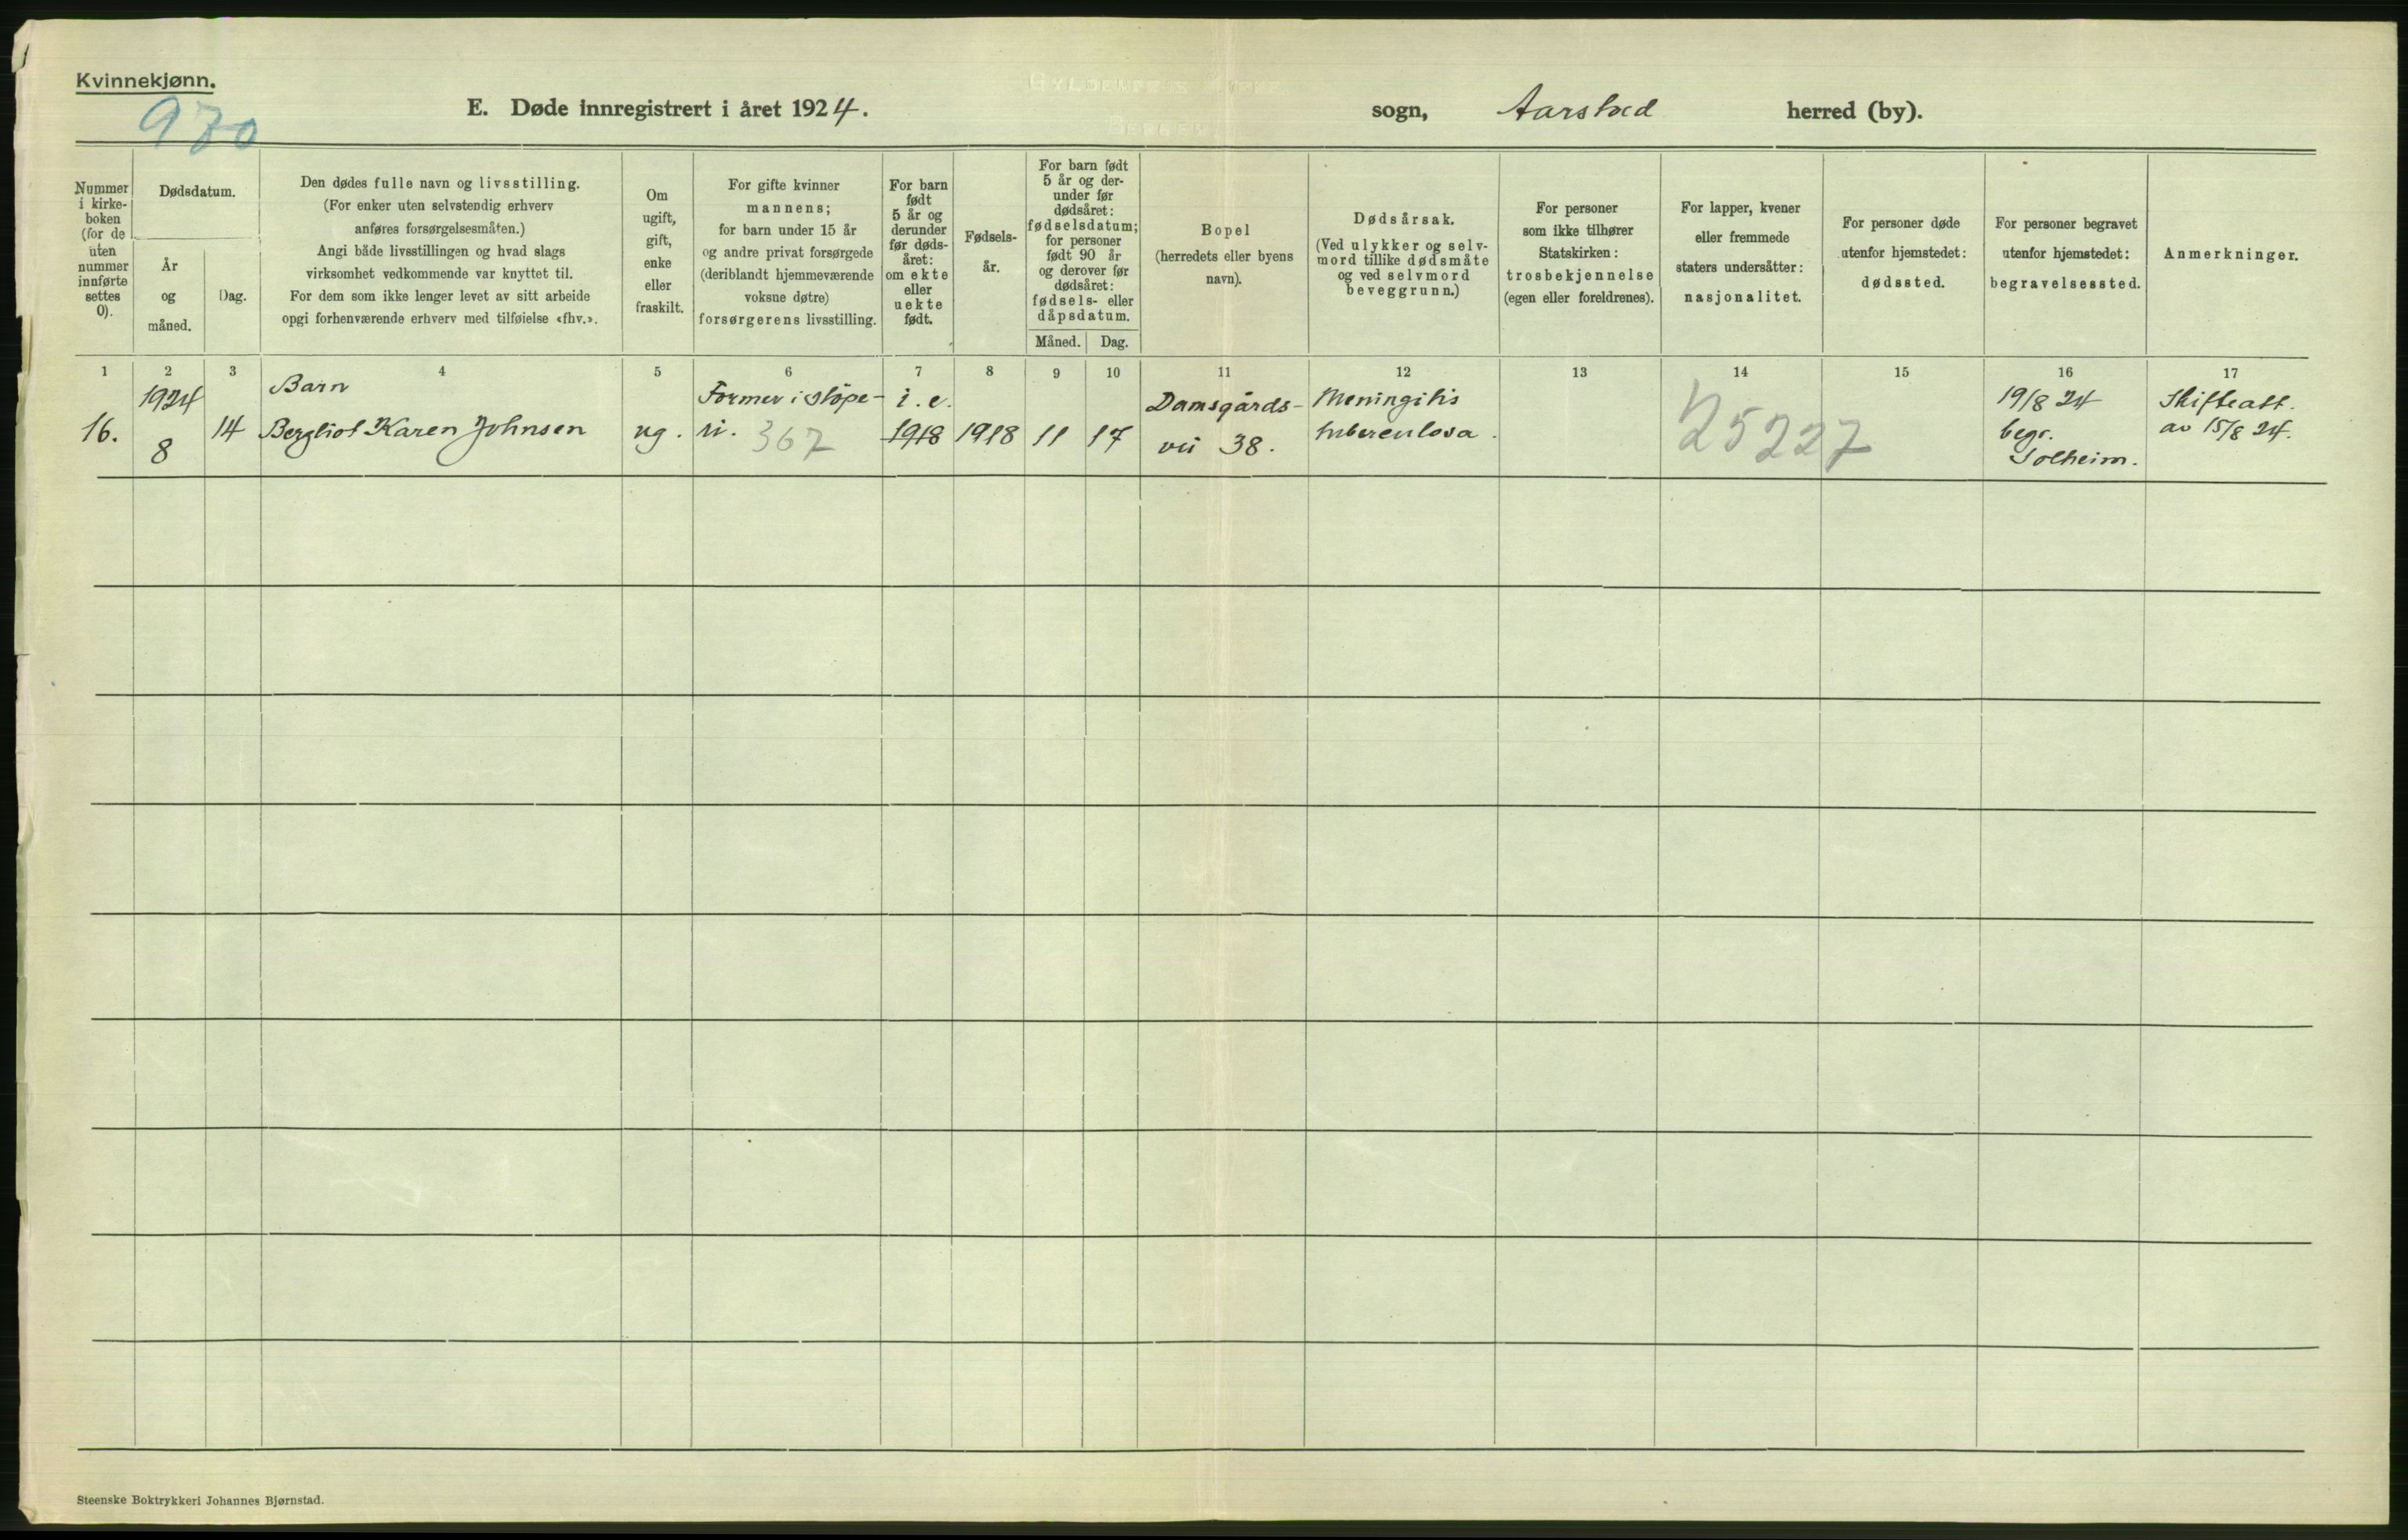 Kvinnekjønn.
970
E. Døde innregistrert i året 1924.
sogn, Aarstad herred (by).
Nummer i kirke-boken (for de uten nummer innførte settes 0).
Dødsdatum.
År og måned.
Dag.
Den dødes fulle navn og livsstilling.
(For enker uten selvstendig erhverv
anføres forsørgelsesmåten.)
Angi både livsstillingen og hvad slags
virksomhet vedkommende var knyttet til.
For dem som ikke lenger levet av sitt arbeide
opgi forhenværende erhverv med tilføielse «fhv.».
Om
ugift,
gift,
enke
eller
fraskilt.
For gifte kvinner
mannens;
for barn under 15 år
og andre privat forsørgede
(deriblandt hjemmeværende
voksne døtre)
forsørgerens livsstilling.
For barn
født
5 år og
derunder
før døds-
året:
om ekte
eller
uekte
født.
Fødsels-
år.
For barn født
5 år og der-
under før
dødsåret:
fødselsdatum;
for personer
født 90 år
og derover før
dødsåret:
fødsels- eller
dåpsdatum.
Måned. Dag.
Bopel
(herredets eller byens
navn).
Dødsårsak.
(Ved ulykker og selv-
mord tillike dødsmåte
og ved selvmord
beveggrunn.)
For personer
som ikke tilhører
Statskirken:
trosbekjennelse
(egen eller foreldrenes).
For lapper, kvener
eller fremmede
staters undersåtter:
nasjonalitet.
For personer døde
utenfor hjemstedet:
dødssted.
For personer begravet
utenfor hjemstedet:
begravelsessted.
Anmerkninger.
1 2 3 4 5 6 7 8 9 10 11 12 13 14 15 16 17
16.
1924
8
14
Barn
Bergliot Karen Johnsen
ug.
Former i støpe-
ri. 367
i. e.
1918
1918
11
17
Damsgårds-
vei 38.
Meningitis
tuberculosa.
25227
19/8 24
begr.
Solheim.
Skifteatt.
av 15/8 24.
Steenske Boktrykkeri Johannes Bjørnstad.